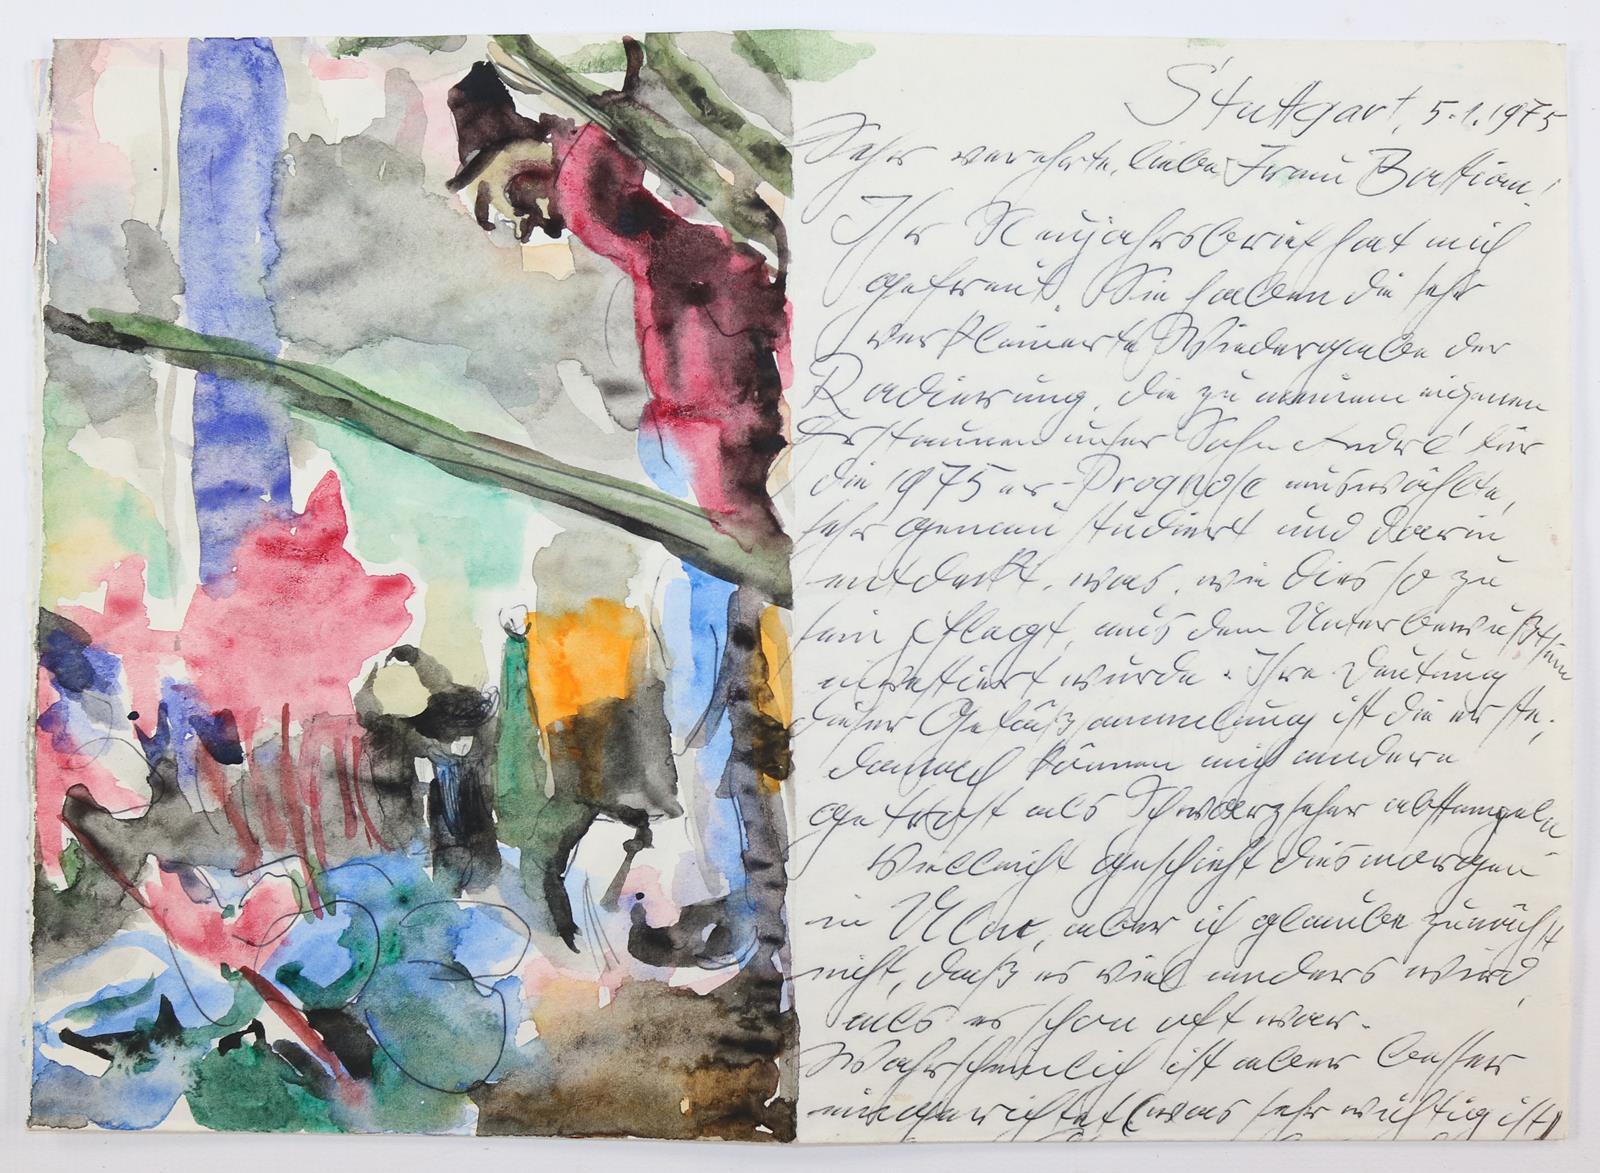 Stuttgart, 5.1.1975
Sehr verehrte, liebe Frau Bastian!
Ihr Neujahrsbrief hat mich
gefreut. Sie haben die sehr
verkleinerte Wiedergabe der
Radierung, die zu meinem eigenen
Erstaunen unser Sohn André für
die 1975er-Prognose auswählte,
sehr genau studiert und darin
entdeckt, was, wie dies so zu
sein pflegt, aus dem Unterbewußtsein
investiert wurde. Ihre Deutung
dieser Gefäßsammlung ist die erste;
danach können mich andere
getrost als Schwarzseher abstempeln
Vielleicht geschieht dies morgen
in Ulm, aber ich glaube zunächst
nicht, daß es viel anders wird,
als es schon oft war.
Wahrscheinlich ist aber besser
eingerichtet (was sehr wichtig ist)